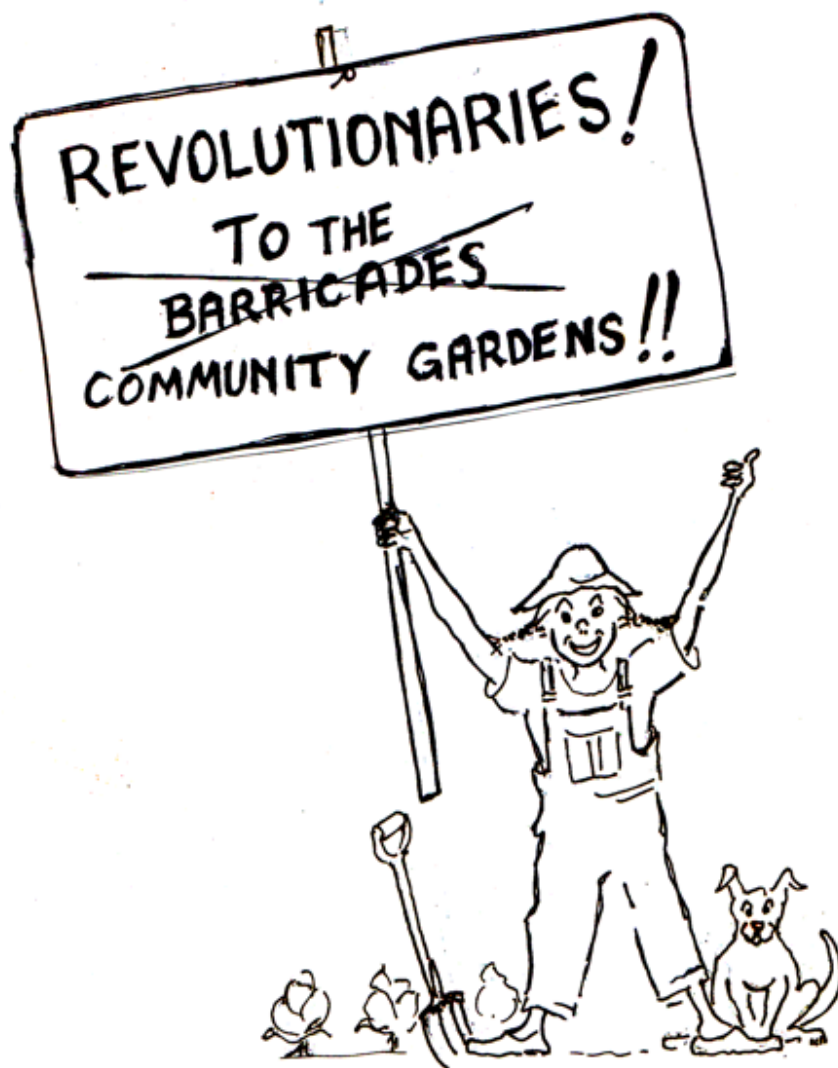 REVOLUTIONARIES!
TO THE
BARRICADES
COMMUNITY GARDENS!!